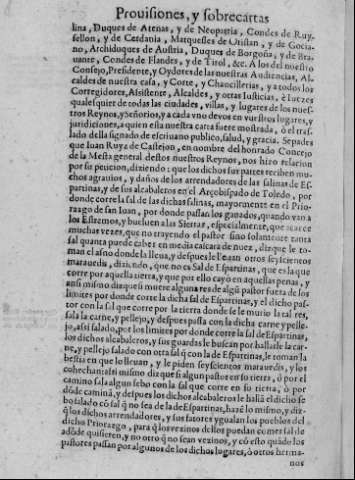 Prouisiones, y sobrecartas
lina, Duques de Atenas, y de Neopatria, Condes de Ruy-
sellon, y de Cerdania, Marqueses de Oristan, y de Gocia-
no, Archiduques de Austria, Duques de Borgoña, y de Bra-
uante, Condes de Flandes, y de Tirol, &c. A los del nuestro
Consejo, Presidente, y Oydores de las nuestras Audiencias, Al-
caldes de nuestra casa, y Corte, y Chancillerias, y a todos los
Corregidores, Assistente, Alcaldes, y otras Iusticias, è Iuezes
qualesquier de todas las ciudades, villas, y lugares de los nues-
tros Reynos, y Señorios, y a cada vno devos en vuestros lugares, y
juridiciones, a quien esta nuestra carta fuere mostrada, ò el tras-
lado della signado de escriuano publico, salud, y gracia. Sepades
que Iuan Ruyz de Castejon, en nombre del honrado Concejo
de la Mesta general destos nuestros Reynos, nos hizo relacion
por su peticion, diziendo: que los dichos sus partes reciben mu-
chos agrauios, y daños de los arrendadores de las salinas de Es-
partinas, y de sus alcabaleros en el Arçobispado de Toledo, por
donde corre la sal de las dichas salinas, mayormente en el Prio-
razgo de san Iuan, por donde passan los ganados, quando van a
los Estremos, y bueluen a las Sierras, especialmente, que acaece
muchas vezes, que no trayendo el pastor sino solamente tanta
sal quanta puede caber en media calcara de nuez, dizque le to-
man el asno donde la lleua, y despues le lleuan otros seyscientos
marauedis, diziendo, que no es Sal de Espartinas, que es la que
corre por aquella tierra, y que por ello cayo en aquellas penas, y
ansi mismo dizque si muere alguna res de algũ pastor fuera de los
limites por donde corre la dicha sal de Espartinas, y el dicho pas-
tor con la sal que corre por la tierra donde se le murio la tal res,
sala la carne, y pellejo, y despues passa con la dicha carne y pelle-
jo, assi salado, por los limites por donde corre la sal de Espartinas,
los dichos alcabaleros, y sus guardas le buscan por hallalle la car-
ne, y pellejo salado con otra sal q̃ con la de Espartinas, le toman la
bestia en que lo lleuan, y le piden seyscientos marauedis, y los
cohechan: assi mismo dizque si algun pastor en su tierra, ò por el
camino sala algun sebo con la sal que corre en su tierra, ò por
dõde camina, y despues los dichos alcabaleros le hallã el dicho se
bo salado cõ sal q̃ no sea de la de Espartinas, hazẽ lo mismo, y diz-
q̃ los dichos arrendadores, y sus fatores ygualan los pueblos del
dicho Priorazgo, para q̃ los vezinos dellos puedan comer sal de
adõde quisieren, y no otro q̃ no sean vezinos, y cõ esto quãdo los
pastores passan por algunos de los dichos lugares, ò otros herma-
nos